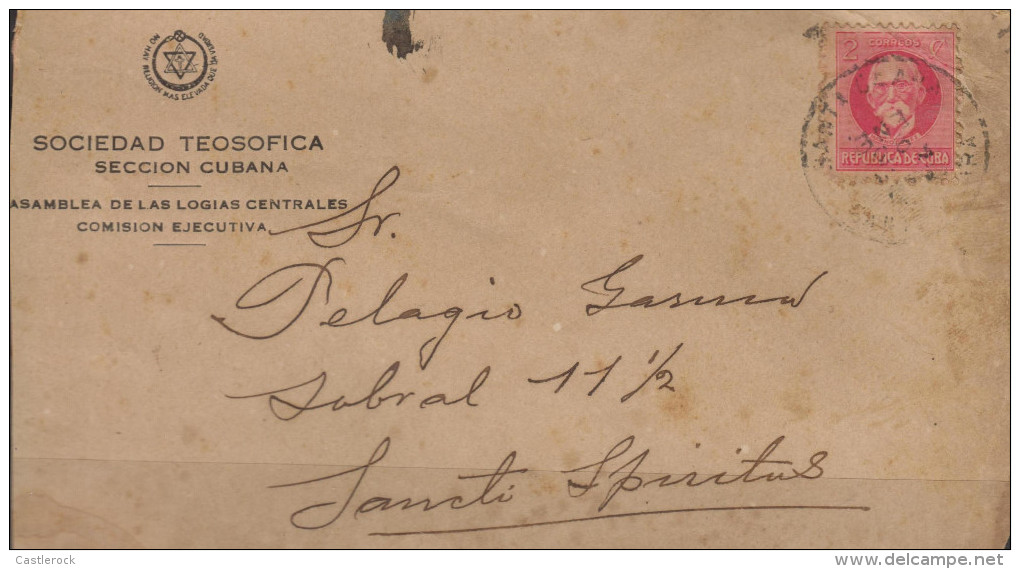 NO HAY RELIGION MAS ELEVADA QUE LA VERDAD
SOCIEDAD TEOSOFICA
SECCION CUBANA
ASAMBLEA DE LAS LOGIAS CENTRALES
COMISION EJECUTIVA
2 CORREOS C
REPUBLICA DE CUBA
Sr.
Pelagio
Sobral 11 1/2
Sancti Spiritus
Castlerock
www.delcampe.net